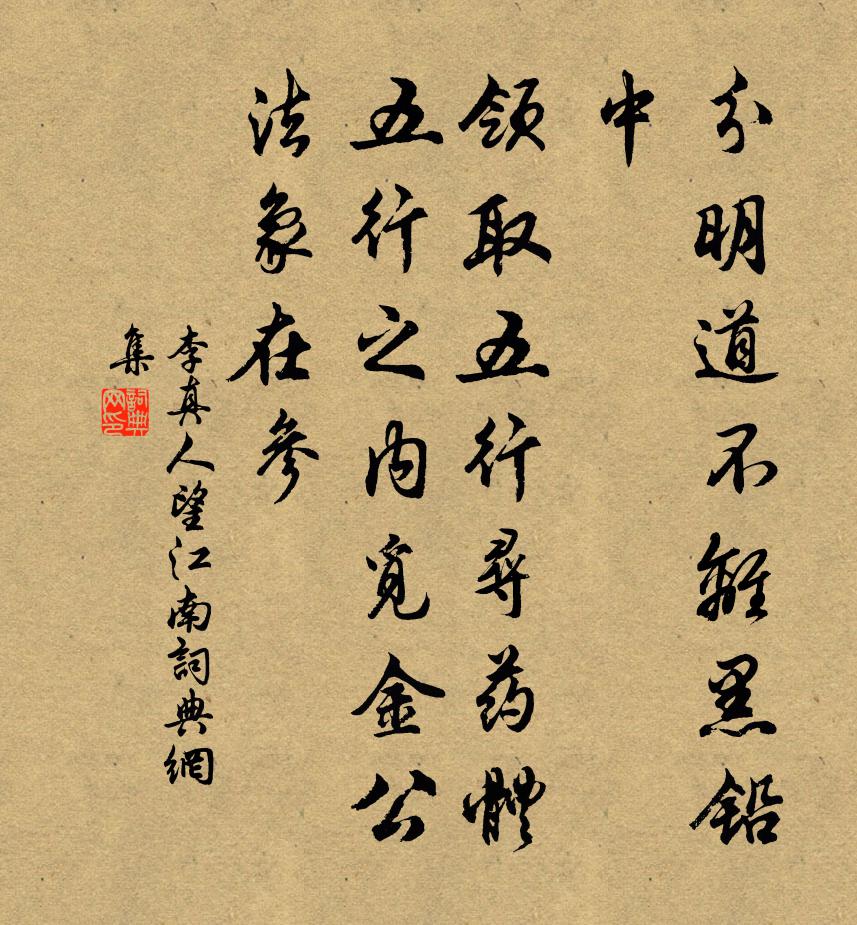 分明道不離黑鉛
中
領取五行尋药體
五行之內覓金公
法象在參
李真人望江南詞典網
集
詞典
网印